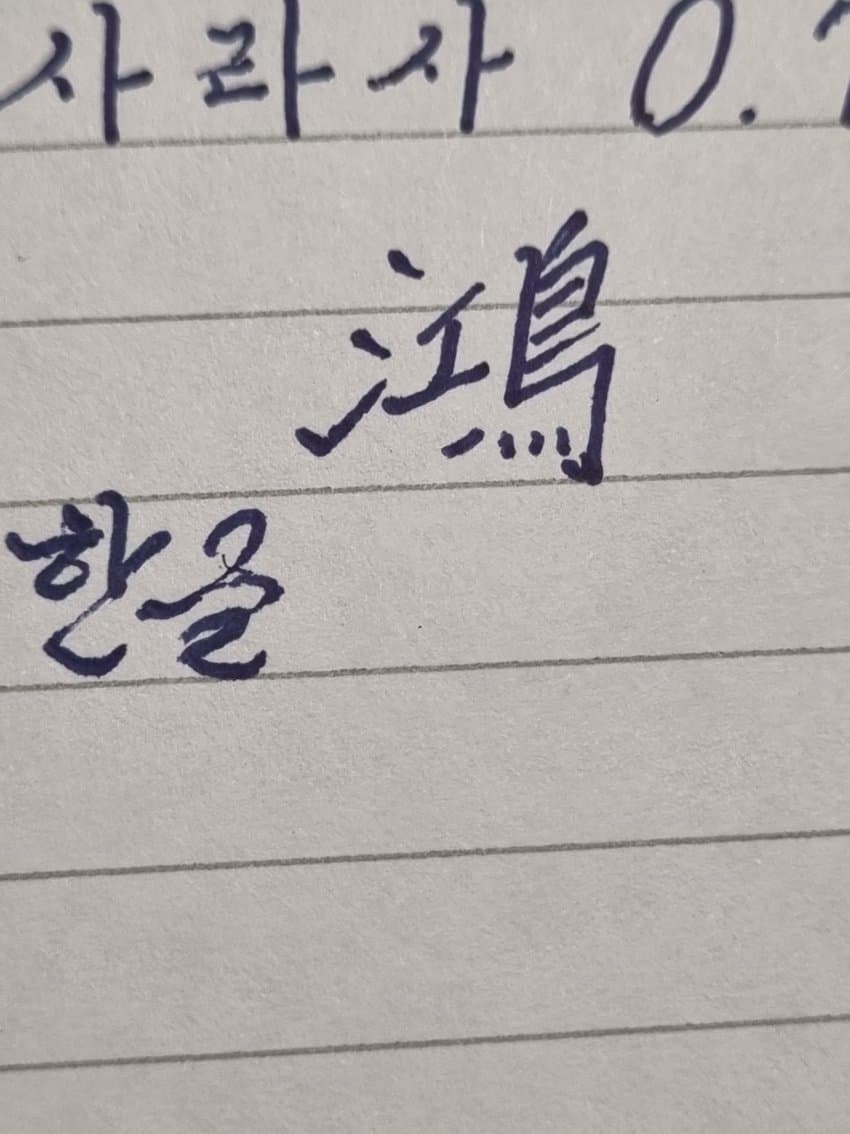 사라사 0.
鴻
한글